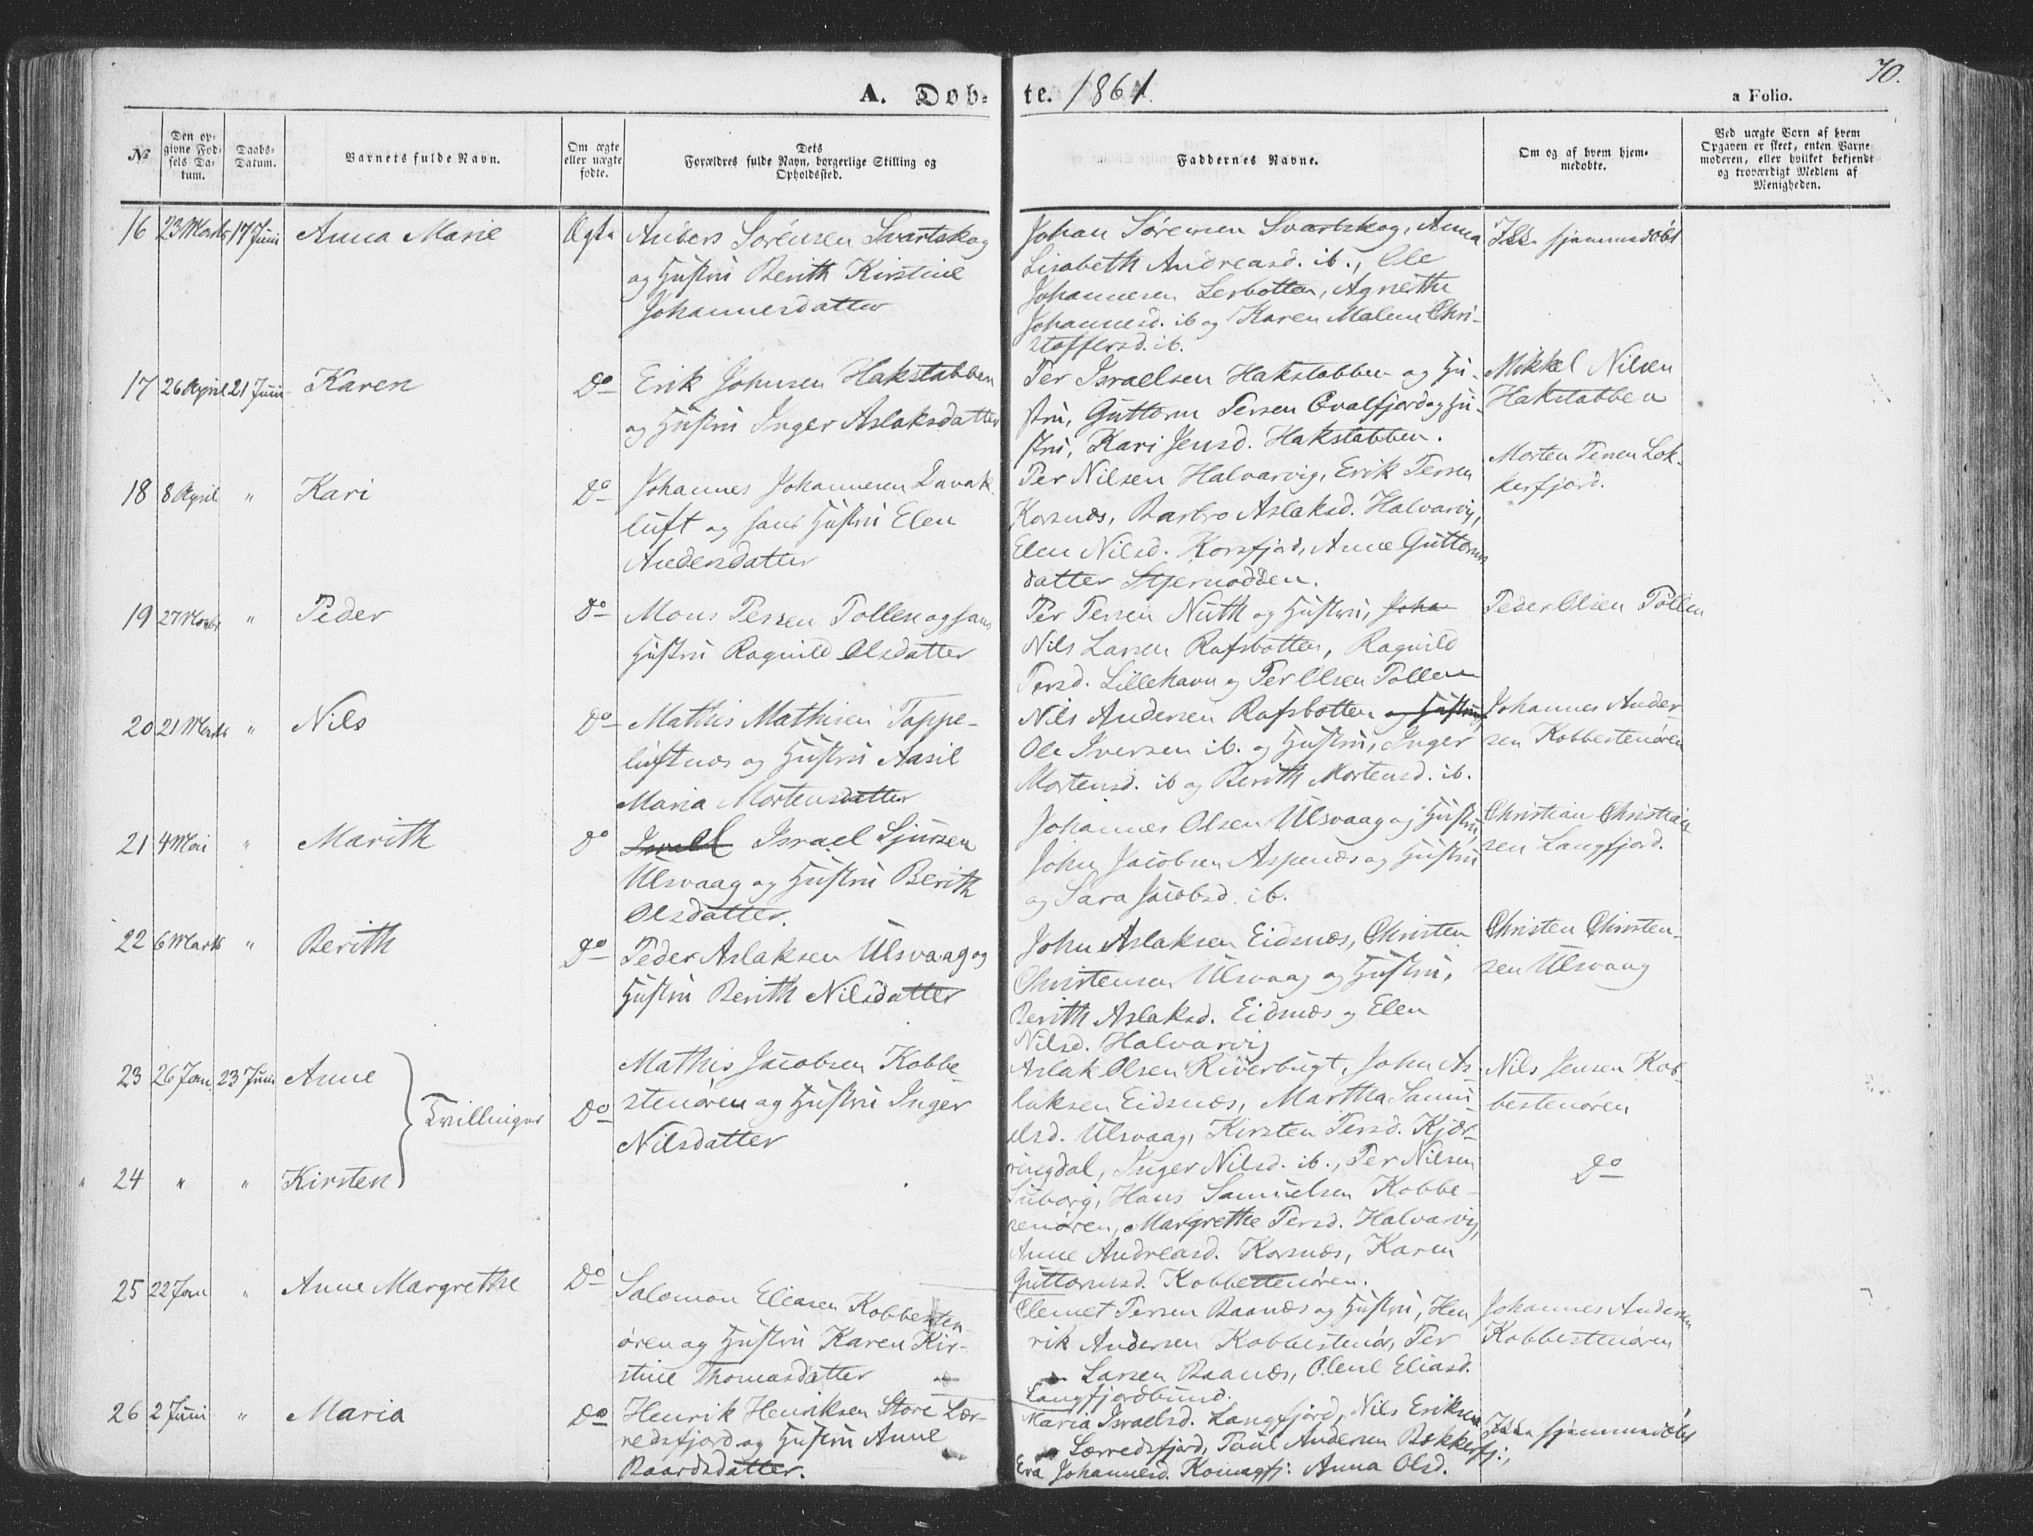 70.
A. Døb-te. 1861.
a Folio.
№
Den op-
givne Fød-
sels Da-
tum.
Daabs-
Datum.
Barnets fulde Navn.
Om ægte
eller uægte
fødte.
Dets
Forældres fulde Navn, borgerlige Stilling og
Opholdssted.
Faddernes Navne.
Om og af hvem hjem-
medøbte.
Ved uægte Børn af hvem
Opgaven er skeet, enten Barne-
moderen, eller hvilket bekjendt
og troværdigt Medlem af
Menigheden.
16 23 Marts 17 Juni Anna Marie Ægte
Anders Sørensen Svartskog
og Hustru Berith Kirstine
Johannesdatter
Johan Sørensen Svartskog, Anna
Lisabeth Andreasd. ib., Ole
Johannesen Lerbotten, Agnethe
Johannesd. ib og Karen Malene Chri-
stoffersd. ib.
Ikke hjemmedøbt
17 26 April 21 Juni Karen Do
Erik Johnsen Hakstabben
og Hustru Inger Aslaksdatter
Per Israelsen Hakstabben og Hu-
stru, Guttorm Persen Qvalfjord og Hu-
stru, Kari Jensd. Hakstabben.
Mikkel Nilsen
Hakstabben
18 8 April " Kari Do
Johannes Johannesen Davak-
luft og hans Hustru Elen
Andersdatter
Per Nilsen Halvarvig, Erik Persen
Korsnæs, Barbro Aslaksd. Halvarvig,
Elen Nilsd. Korsfjord, Anne Guttorms
datter Stjernodden.
Morten Persen Lok-
kerfjord.
19 27 Marts " Peder Do
Mons Persen Pollen og hans
Hustru Ragnild Olsdatter
Per Persen Nuth og Hustru, Joha
Nils Larsen Rafsbotten, Ragnild
Persd. Lillehavn og Per Olsen Pollen
Peder Olsen Pollen
20 21 Marts " Nils Do
Mathis Mathisen Tappe-
luftnæs og Hustru Aasil
Maria Mortensdatter
Nils Andersen Rafsbotten og Hustru,
Ole Iversen ib. og Hustru, Inger
Mortensd. ib og Berith Mortensd. ib.
Johannes Ander-
sen Kobbestenøren
21 4 Mai " Marith Do
Israel Israel Sjursen
Ulsvaag og Hustru Berith
Olsdatter.
Johannes Olsen Ulsvaag og Hustru,
John Jacobsen Aspenæs og Hustru
og Sara Jacobsd. ib.
Christian Christian
sen Langfjord.
22 6 Marts " Berith Do
Peder Aslaksen Ulsvaag og
Hustru Berith Nilsdatter
John Aslaksen Eidsnæs, Christen
Christensen Ulsvaag og Hustru,
Berith Aslaksd. Eidsnæs og Elen
Nilsd. Halvarvig
Christen Christen-
sen Ulsvaag
23 26 Jan 23 Juni Anne
Tvillinger Do
Mathis Jacobsen Kobbe-
stenøren og Hustru Inger
Nilsdatter
Aslak Olsen Riverbugt, John As-
laksen Eidsnæs, Martha Samu-
elsd. Ulsvaag, Kirsten Persd. Kjær-
ringdal, Inger Nilsd. ib., Per Nilsen
Nils Jensen Kob-
bestenøren
24 " " Kirsten
Hans Samuelsen Kobbe-
Margrethe Persd. Halvarvig,
Anne Andreasd. Korsnæs, Karen
Guttormsd. Kobbestenøren.
Do
25 22 Jan " Anne Margrethe Do
Salomon Eliasen Kobbesten
øren og Hustru Karen Kir-
stine Thomasdatter
Clemet Persen Baanæs og Hustru, Hen
rik Andersen Kobbestenør, Per
Larsen Baanæs, Olene Eliasd.
Langfjordbund.
Johannes Andersen
Kobbestenøren
26 2 Juni " Maria Do
Henrik Henriksen Store Lær-
redsfjord og Hustru Anne
Baardsdatter.
Maria Israelsd. Langfjord, Nils Eriksen
Lærredsfjord, Paul Andersen Bekkerfj:,
Eva Johannesd. Komagfj: Anna Olsd.
Ikke hjemmedøbt